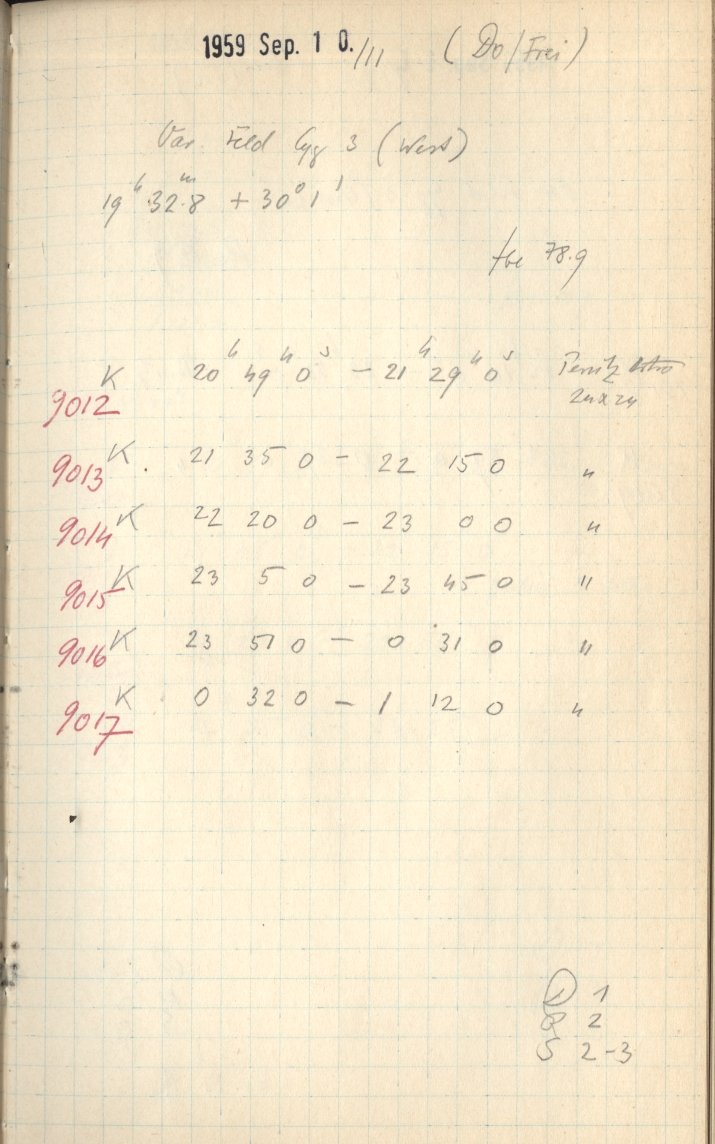 1959 Sep. 1 0./11 (Do/Frei)
Var. Feld Cyg 3 (West)
19h 32m.8 + 30° 1'
78.9
9012 K 20h 49 0s – 21h 29 0s
24x24
9013 K 21 35 0 – 22 15 0 "
9014 K 22 20 0 – 23 0 0 "
9015 K 23 5 0 – 23 45 0 "
9016 K 23 51 0 – 0 31 0 "
9017 K 0 32 0 – 1 12 0 "
1
2
S 2-3